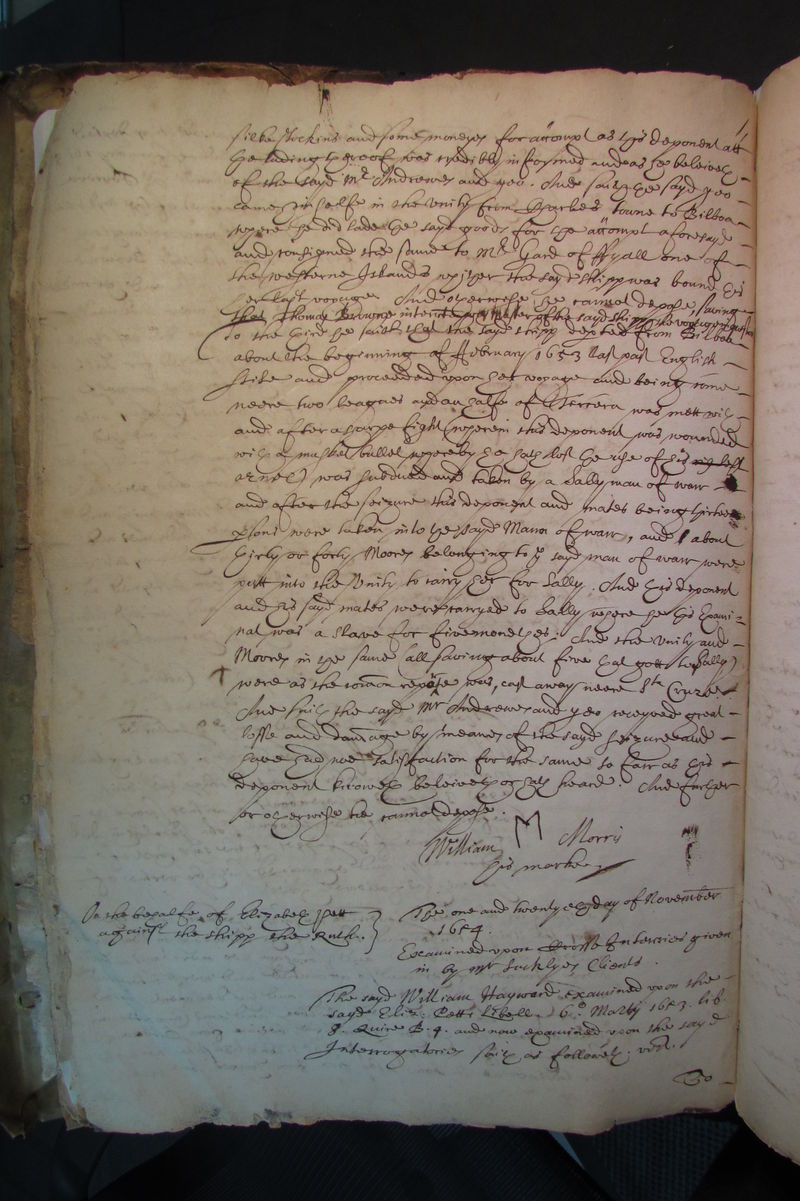 silke stockins and some moneyes for accompt as this deponent att
the lading thereof was credibly informed and as he beleiveth
of the sayd Mr Andrewes and yeo. And saith the sayd yeo
came himselfe in the Unity from Charles towne to Bilboa
where he did lade the sayd goods for the accompt aforesayd
and consigned the same to Mr Gard of ffyall one of
the westerne Islands whither the sayd shipp was bound this
her last voyage. And otherwise he cannot depose, saving
that Thomas Browne master of the sayd shipp the voyage
To the third he saith that the sayd shipp depted from Bilboa
about the beginning of ffebruary 1653 last past English
stile and proceeded upon her voyage and being some
neere two leagues and an halfe of Tercera was mett with
and after a sharpe fight (wherein this deponent was wounded
with a musket bullet whereby he hath lost the use of his left
arme) was subdued and taken by a Sally man of warr
and after the seizure this deponent and mates being thirteen
psons were taken into the sayd Mann of warr, and about
thirty or forty Moores belonging to the sayd man of warr were
putt into the Unity to carry her for Sally. And this deponent
and his sayd mates were carryed to Sally where he this Exami-
nat was a slave for five monethes. And the Unity and
Moores in the same (all saving about five that gott to Sally)
were as the comon repute was, cast away neere Sta Cruze.
And saith the sayd Mr Andrewes and yeo receyved great
losse and damage by meanes of the sayd seizure and
have had noe satisfaction for the same so farr as this
deponent knoweth beleiveth or hath heard. And further
or otherwise he cannot depose.
William M Morris
his marke
On the behalfe of Elizabeth Pett
against the shipp the Ruth.
The one and twentyeth day of November
1654.
Examined upon Crosse Interries given
in by Mr Sucklyes Clients.
The sayd William Hayward examined upon the
sayd Eliz: Petts libell 6o Martij 1653. lib.
J. Quire B. 4. and now examined upon the sayd
Interrogatories saith as followeth. vizt.
To